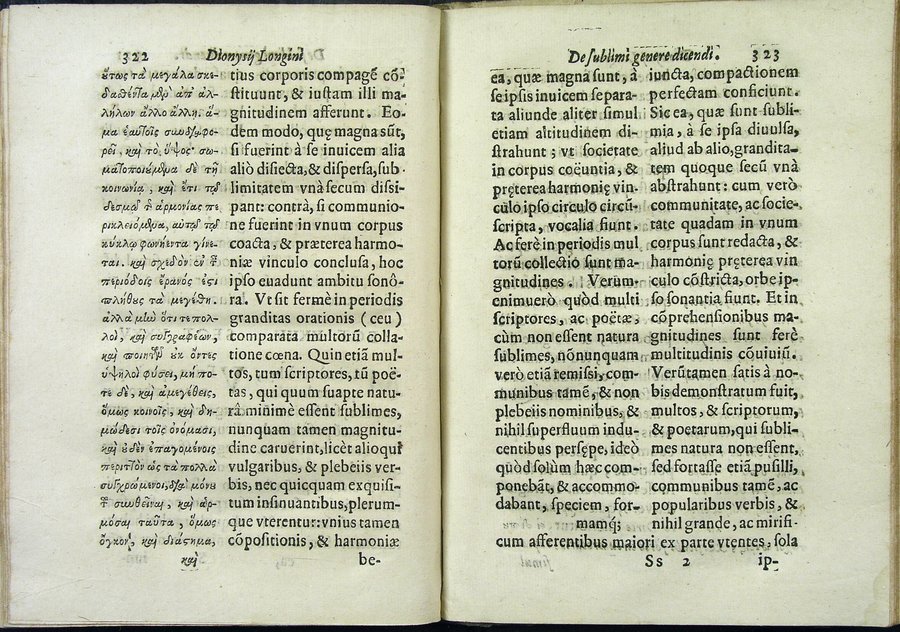 322 Dionysij Longini
ὕτως τὰ μεγάλα σκε-
δαθέντα μὲν ἀπ' ἀλ-
λήλων ἄλλο ἄλλῃ, ἅ-
μα ἑαυτοῖς συνδιαφο-
ρεῖ, καὶ τὸ ὕψος· σω-
ματοποιούμενα δὲ τῇ
κοινωνίᾳ, καὶ ἔτι τῷ
δεσμῷ τ ἁρμονίας πε
ρικλειόμενα, αὐτῷ τῷ
κύκλῳ φωνήεντα γίνε-
ται. καὶ σχεδὸν ἐν τ
περιόδοις ἔρανός ἐστι
πλήθους τὰ μεγέθη.
ἀλλὰ μὴν ὅτι τε πολ-
λοὶ, καὶ συγγραφέων,
καὶ ποιητῶν ὐκ ὄντες
ὑψηλοὶ φύσει, μή πο-
τε δὲ, καὶ ἀμεγέθεις,
ὅμως κοινοῖς, καὶ δη-
μώδεσι τοῖς ὀνόμασι,
καὶ οὐδὲν ἐπαγομένοις
περιττὸν ὡς τὰ πολλὰ
συγχρώμενοι, διὰ μόνου
τ συνθεῖναι, καὶ ἁρ-
μόσαι ταῦτα, ὅμως
ὄγκον, καὶ διάστημα,
καὶ
tius corporis compagē cō-
stituunt, & iustam illi ma-
gnitudinem afferunt. Eo-
dem modo, quę magna sūt,
si fuerint à se inuicem alia
aliò disiecta, & dispersa, sub-
limitatem vnà secum dissi-
pant: contrà, si communio-
ne fuerint in vnum corpus
coacta, & præterea harmo-
niæ vinculo conclusa, hoc
ipso euadunt ambitu sonó-
ra. Vt sit fermè in periodis
granditas orationis (ceu)
comparata multorū colla-
tione cœna. Quin etiā mul-
tos, tum scriptores, tū poë-
tas, qui quum suapte natu-
ra minimè essent sublimes,
nunquam tamen magnitu-
dine caruerint, licèt alioqui
vulgaribus, & plebeiis ver-
bis, nec quicquam exquisi-
tum insinuantibus, plerum-
que vterentur: vnius tamen
cōpositionis, & harmoniæ
be-
De sublimi genere dicendi. 323
ea, quæ magna sunt, à
se ipsis inuicem separa-
ta aliunde aliter simul
etiam altitudinem di-
strahunt; vt societate
in corpus coëuntia, &
pręterea harmonię vin-
culo ipso circulo circū-
scripta, vocalia fiunt.
Ac ferè in periodis mul
torū collectio sunt ma-
gnitudines. Verum-
enimuero quòd multi
scriptores, ac poëtæ,
cùm non essent natura
sublimes, nōnunquam
verò etiā remissi, com-
munibus tamē, & non
plebeiis nominibus, &
nihil superfluum indu-
centibus persępe, ideò
quòd solùm hæc com-
ponebāt, & accommo-
dabant, speciem, for-
mamq;
iuncta, compactionem
perfectam conficiunt.
Sic ea, quæ sunt subli-
mia, à se ipsa diuulsa,
aliud ab alio, grandita-
tem quoque secū vnà
abstrahunt: cum verò
communitate, ac socie-
tate quadam in vnum
corpus sunt redacta, &
harmonię pręterea vin
culo cōstricta, orbe ip-
so sonantia fiunt. Et in
cōprehensionibus ma-
gnitudines sunt ferè
multitudinis cōuiuiū.
Verūtamen satis à no-
bis demonstratum fuit,
multos, & scriptorum,
& poetarum, qui subli-
mes natura non essent,
sed fortasse etiā pusilli,
communibus tamē, ac
popularibus verbis, &
nihil grande, ac mirifi-
cum afferentibus maiori ex parte vtentes, sola
Ss 2 ip-